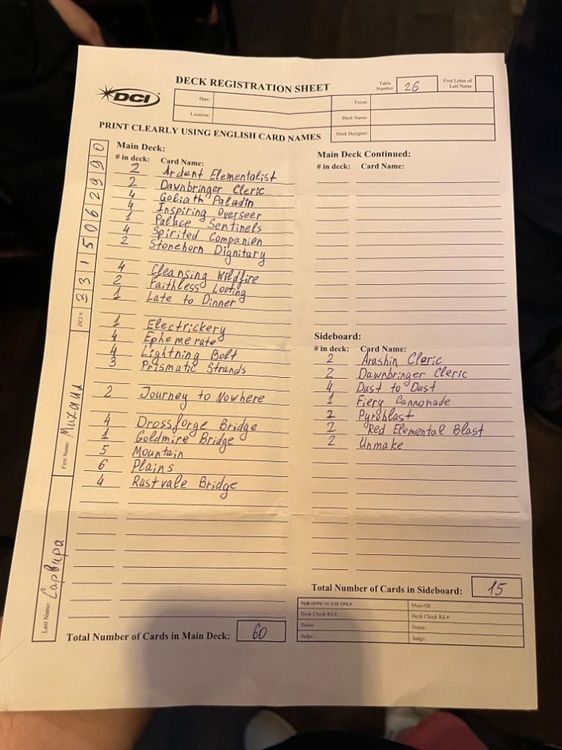 DCI
DECK REGISTRATION SHEET
Table Number: 26
First Letter of Last Name:
Date:
Location:
Event:
Deck Name:
Deck Designer:
PRINT CLEARLY USING ENGLISH CARD NAMES
Main Deck:
# in deck: Card Name:
2 Ardent Elementalist
2 Dawnbringer Cleric
4 Goliath Paladin
4 Inspiring Overseer
1 Palace Sentinels
4 Spirited Companion
2 Stonehorn Dignitary
4 Cleansing Wildfire
2 Faithless Looting
1 Late to Dinner
1 Electrickery
4 Ephemerate
4 Lightning Bolt
3 Prismatic Strands
2 Journey to Nowhere
4 Drossforge Bridge
1 Goldmire Bridge
5 Mountain
6 Plains
4 Rustvale Bridge
Total Number of Cards in Main Deck: 60
Main Deck Continued:
# in deck: Card Name:
Sideboard:
# in deck: Card Name:
2 Arashin Cleric
2 Dawnbringer Cleric
4 Dust to Dust
1 Fiery Cannonade
2 Pyroblast
2 Red Elemental Blast
2 Unmake
Total Number of Cards in Sideboard: 15
FOR OFFICAL USE ONLY
Deck Check Rd #:
Status:
Judge:
Main/SB:
Deck Check Rd #:
Status:
Judge:
Last Name:
First Name:
DCI #: